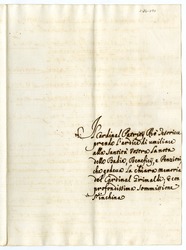 Il Cardinal Patrizij che s'accinse
prende l'ardire di umiliare
alla Santità Vostra la nota
delle Badie, Beneficij, e Pensioni
che godeva la chiara memoria
del Cardinal Grimaldi, e con
profondissima sommissione
s'inchina